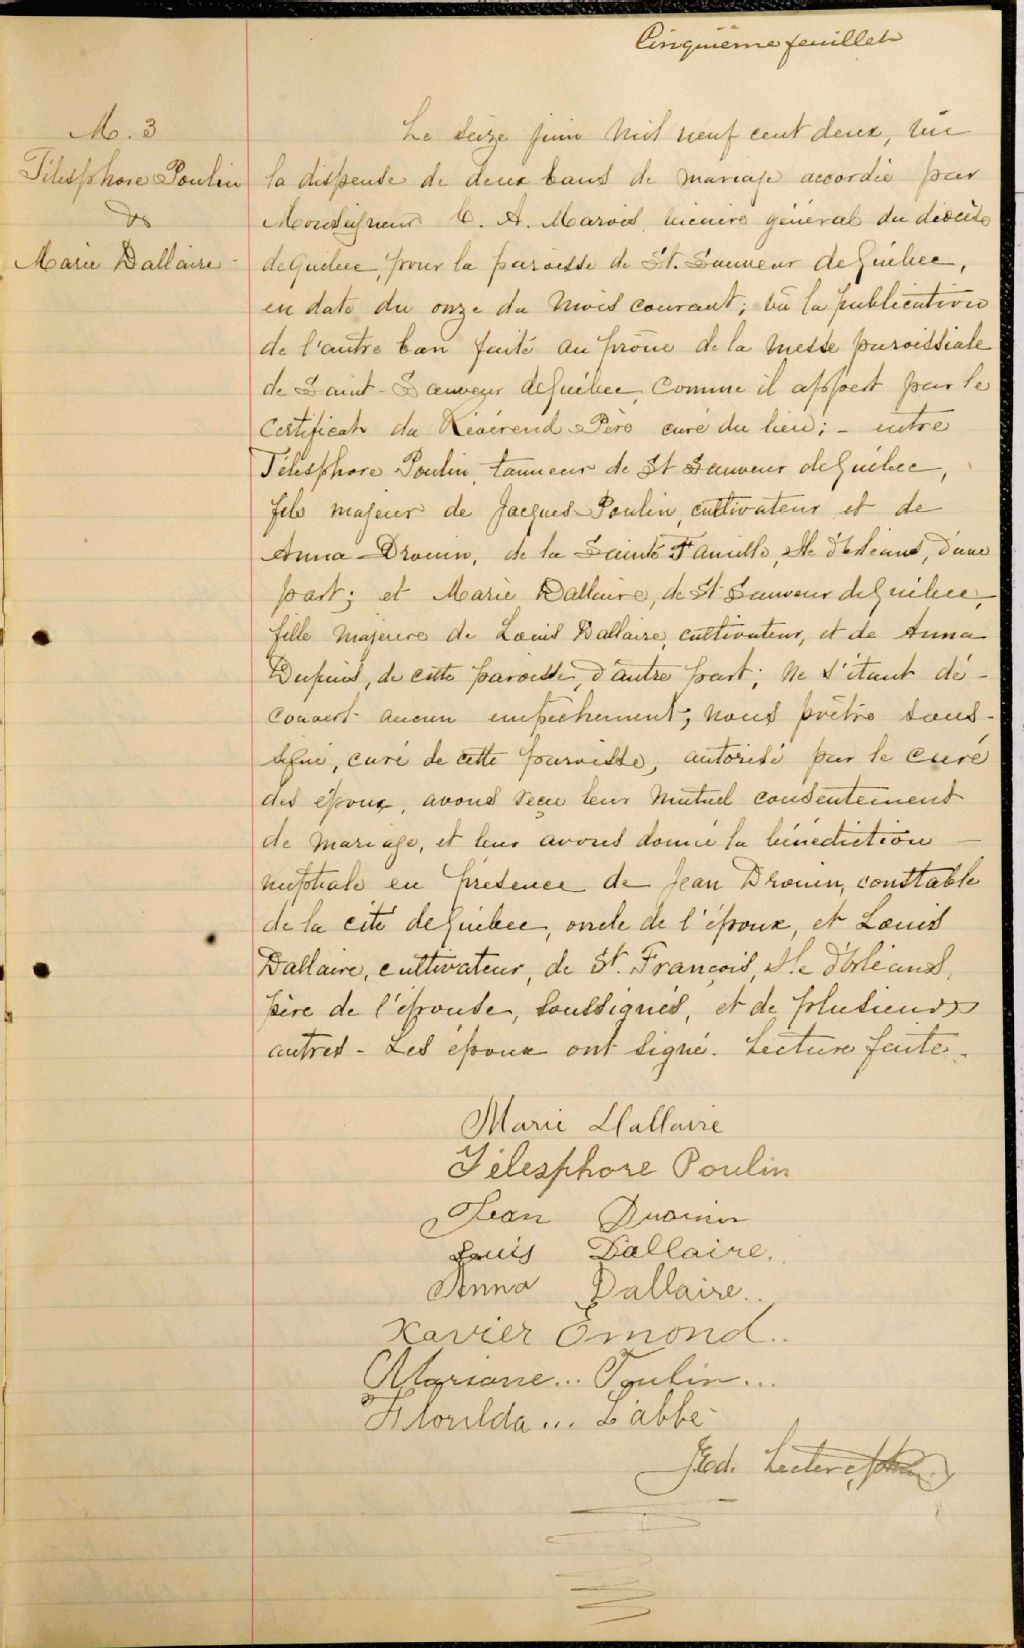 Cinquième feuillet
M. 3
Télesphore Poulin
&
Marie Dallaire
Le seize juin mil neuf cent deux, vu
la dispense de deux bans de mariage accordée par
Monseigneur C. A. Marois, vicaire général du diocèse
de Québec, pour la paroisse de St. Sauveur de Québec,
en date du onze du mois courant; vu la publication
de l'autre ban faite au prône de la messe paroissiale
de Saint-Sauveur de Québec, comme il appert par le
certificat du Révérend Père curé du lieu; - entre
Télesphore Poulin, tanneur de St Sauveur de Québec,
fils majeur de Jacques Poulin, cultivateur et de
Anna Drouin, de la Sainte Famille, Ile d'Orléans, d'une
part; et Marie Dallaire, de St Sauveur de Québec,
fille majeure de Louis Dallaire, cultivateur, et de Anna
Dupuis, de cette paroisse, d'autre part; ne s'étant dé-
couvert aucun empêchement; nous prêtre sous-
signé, curé de cette paroisse, autorisé par le curé
des époux, avons reçu leur mutuel consentement
de mariage, et leur avons donné la bénédiction
nuptiale en présence de Jean Drouin, constable
de la cité de Québec, oncle de l'époux, et Louis
Dallaire, cultivateur, de St. François, Ile d'Orléans,
père de l'épouse, soussignés, et de plusieurs
autres - Les époux ont signé. Lecture faite.
Marie Dallaire
Télesphore Poulin
Jean Drouin
Louis Dallaire.
Anna Dallaire..
Xavier Emond..
Mariane... Poulin...
Florilda... L'abbé
Ed. Leclerc, ptre